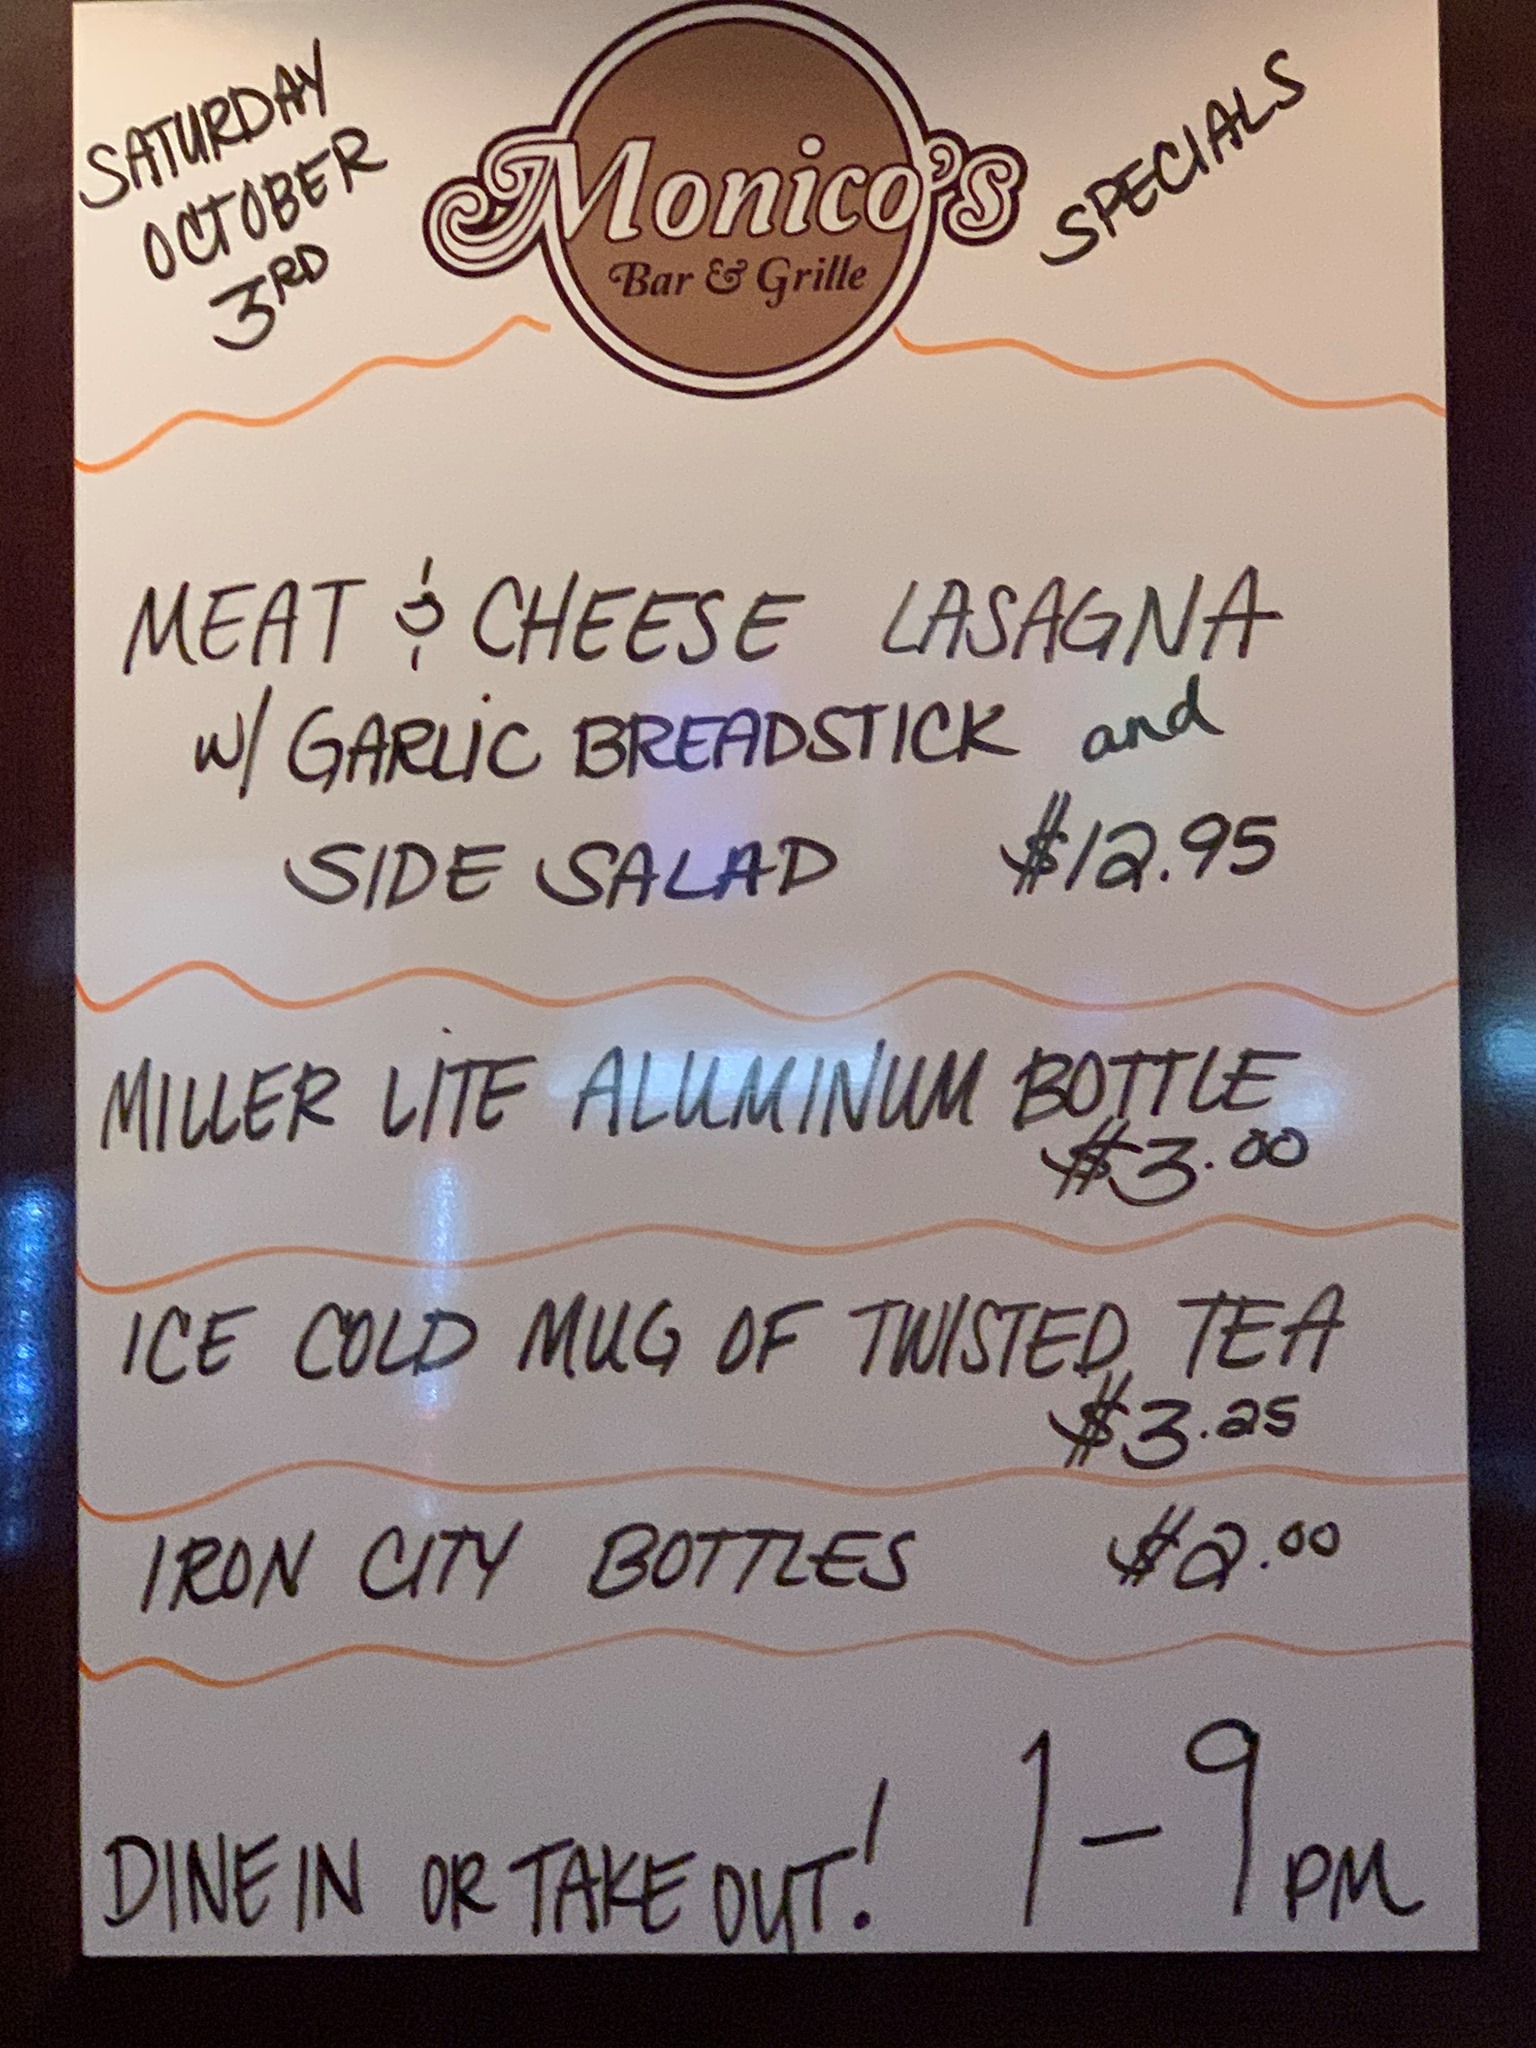 SATURDAY
OCTOBER
3RD
Monico's
Bar & Grille
SPECIALS
MEAT & CHEESE LASAGNA
W/ GARLIC BREADSTICK and
SIDE SALAD $12.95
MILLER LITE ALUMINUM BOTTLE
$3.00
ICE COLD MUG OF TWISTED TEA
$3.25
IRON CITY BOTTLES $2.00
DINE IN OR TAKE OUT! 1-9 PM